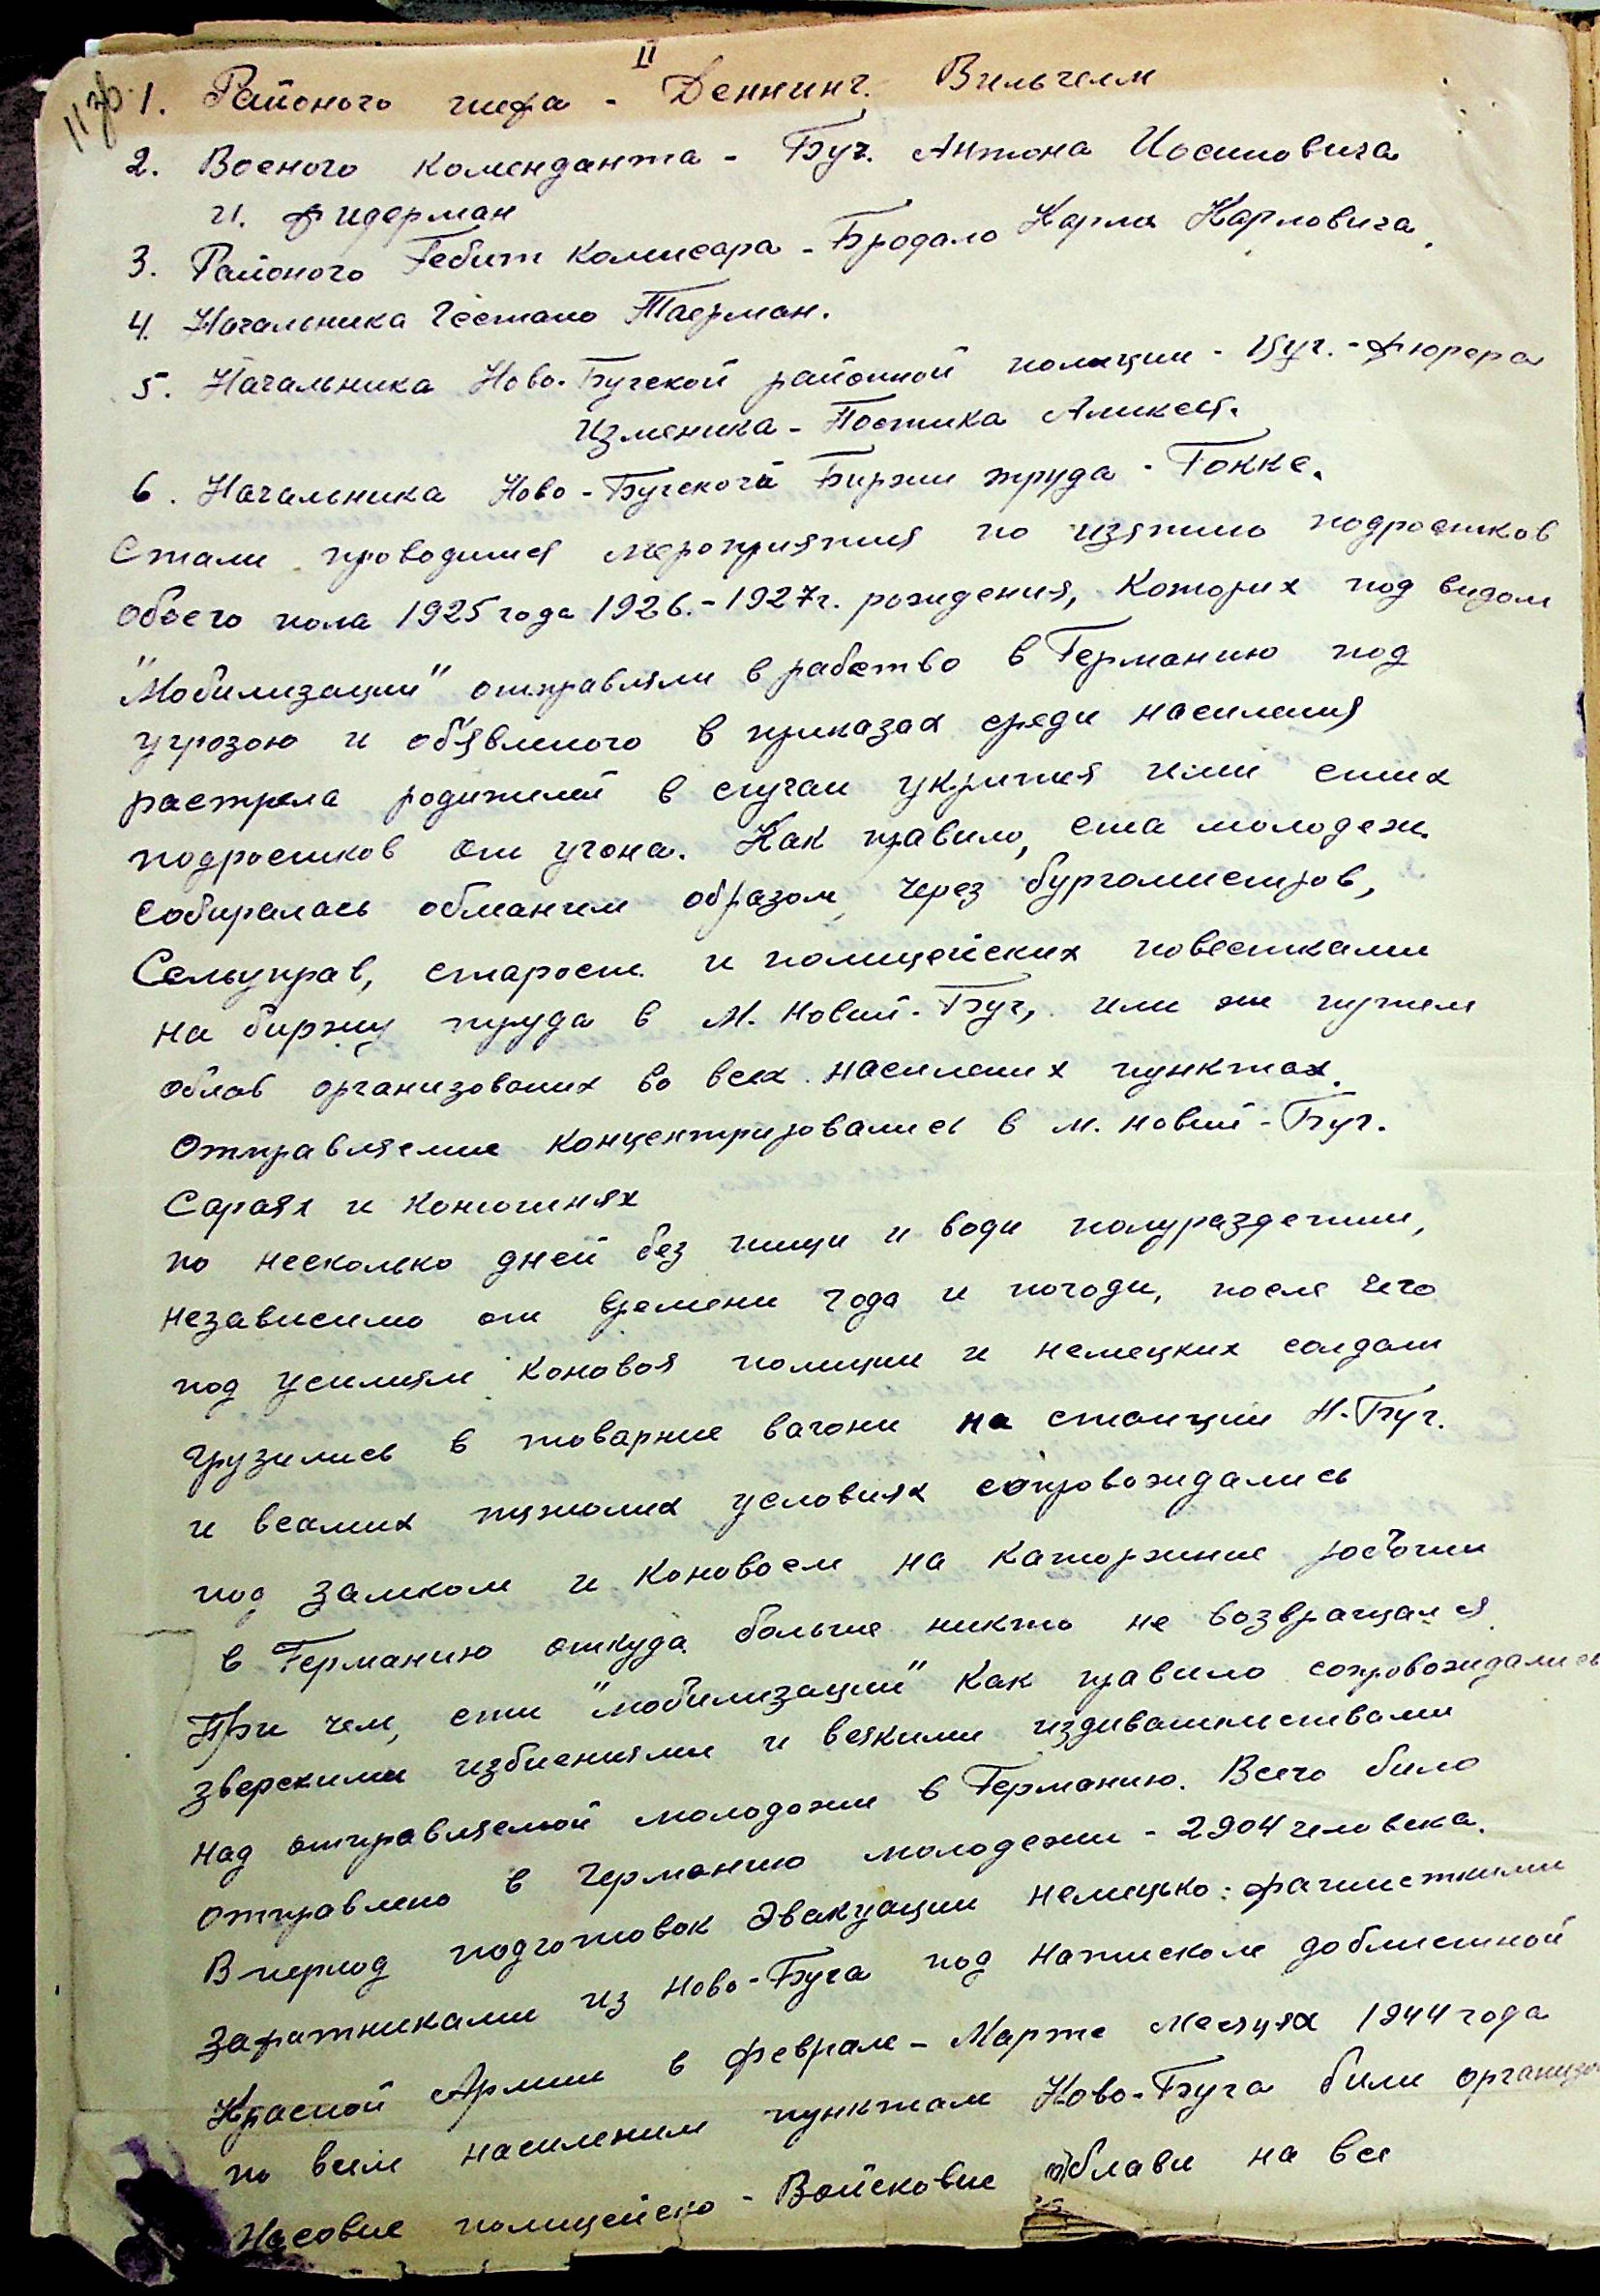 II
113б.
1. Районого шефа - Деннинг. Вильгелм
2. Военого коменданта - Буг. Антона Иосиповича
и. Фидерман
3. Районого Гебит комисара - Бродало Карла Карловича.
4. Начальника Гестапо Таерман.
5. Начальника Ново-Бугской районной полиции - Буг.-Фюрера
Изменика - Постика Аликся.
6. Начальника Ново-Бугской Биржи труда - Гокке.
Стали проводится мероприятия по изятию подростков
обоего пола 1925 года 1926.-1927г. рождения, Которих под видом
"Мобилизации" отправляли в рабство в Германию под
угрозою и об'явленого в приказах среди населения
растрела родителей в случаи укрития ими етих
подростков от угона. Как правило, ета молодеж.
собиралась обманим образом, через бургомистров,
Сельуправ, старост. и полицейских повестками
на биржу труда в м. Новий-Буг, или же путем
облав организованих во всех населених пунктах.
Отправляемие концентрировались в м. Новий-Буг.
Сараях и Конюшнях
по несколько дней без пищи и води полураздетими,
независимо от времени года и погоди, после чего
под усилиям Коновоя полиции и немецких солдат
грузились в товарние вагони на станции Н-Буг.
и всамих тяжолих условиях сопровождались
под замком и Коновоем на Каторжние роботи
в Германию откуда больше никто не возвращался
При чем, ети "мобилизации" Как правило сопровождались
зверскими избиениями и всякими издивательствами
над отправляемой молодожи в Германию. Всего било
отправлено в Германию молодежи - 2904 человека.
В период подготовок Эвакуации немецько: фашисткими
Захатниками из Ново-Буга под натиском доблистной
Красной Армии в феврале - Марте месяцях 1944 года
по всем населеним пунктам Ново-Буга били организо
Масовие полицейско - Войсковие облави на все